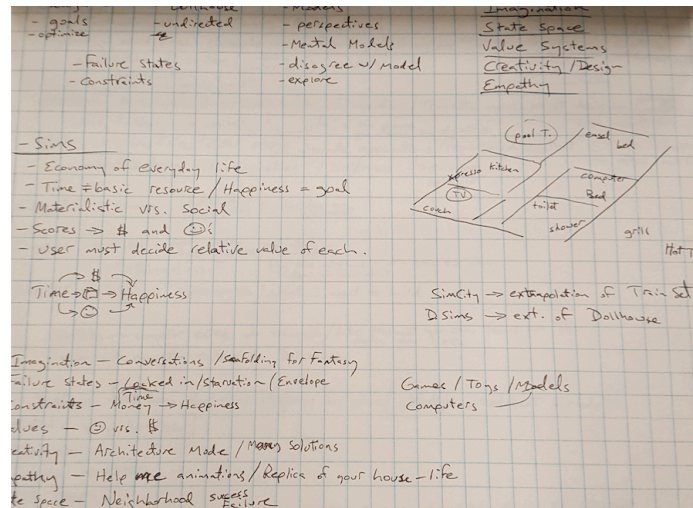 - goals
- optimize
- undirected
- Failure States
- Constraints
- Models
- perspectives
- Mental Models
- disagree w/ Model
- explore
Imagination
State Space
Value Systems
Creativity / Design
Empathy
- Sims
- Economy of everyday life
- Time = basic resource / Happiness = goal
- Materialistic vrs. Social
- Scores → $ and ☺
- User must decide relative value of each.
pool T.
easel
bed
expresso
Kitchen
computer
Bed
TV
toilet
couch
shower
grill
Hot T
$
Time → □ → Happiness
☺
SimCity → extrapolation of Train Set
DSims → ext. of Dollhouse
Imagination - Conversations / Scafolding for Fantasy
Failure States - Locked in / Starvation / Envelope
Time
onstraints - Money → Happiness
alues - ☺ vrs. $
eativity - Architecture Mode / Many Solutions
pathy - Help me animations / Replica of your house - life
te Space - Neighborhood success
Failure
Games / Toys / Models
Computers